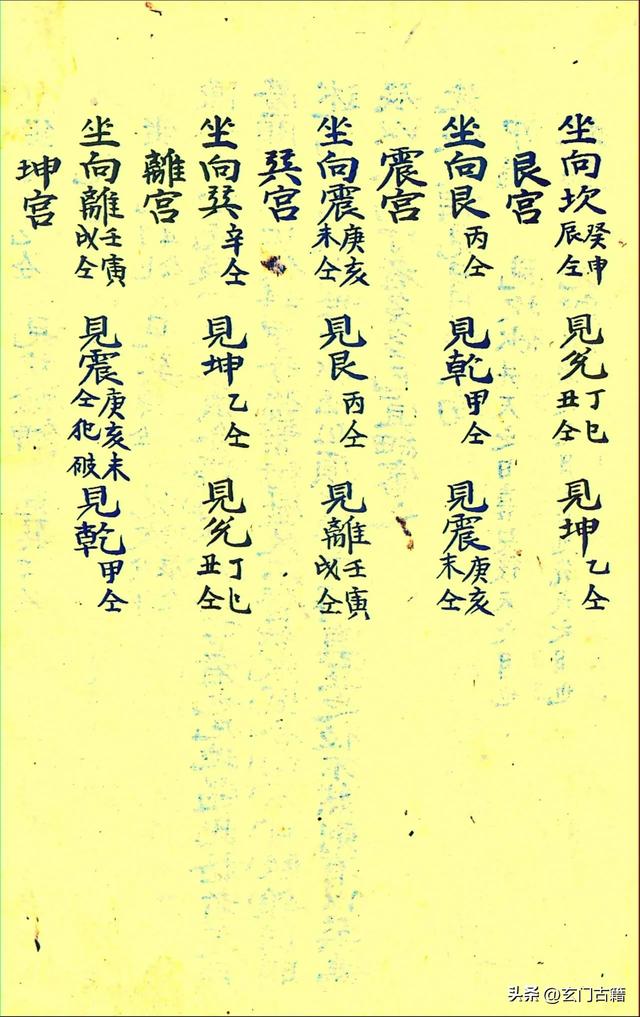 坐向坎癸申辰仝 見兊丁巳丑仝 見坤乙仝
艮宫
坐向艮丙仝 見乾甲仝 見震庚亥未仝
震宫
坐向震庚亥未仝 見艮丙仝 見離壬寅戌仝
巽宫
坐向巽辛仝 見坤乙仝 見兊丁巳丑仝
離宫
坐向離壬寅戌仝 見震庚亥未仝犯破 見乾甲仝
坤宫
头条 @玄门古籍